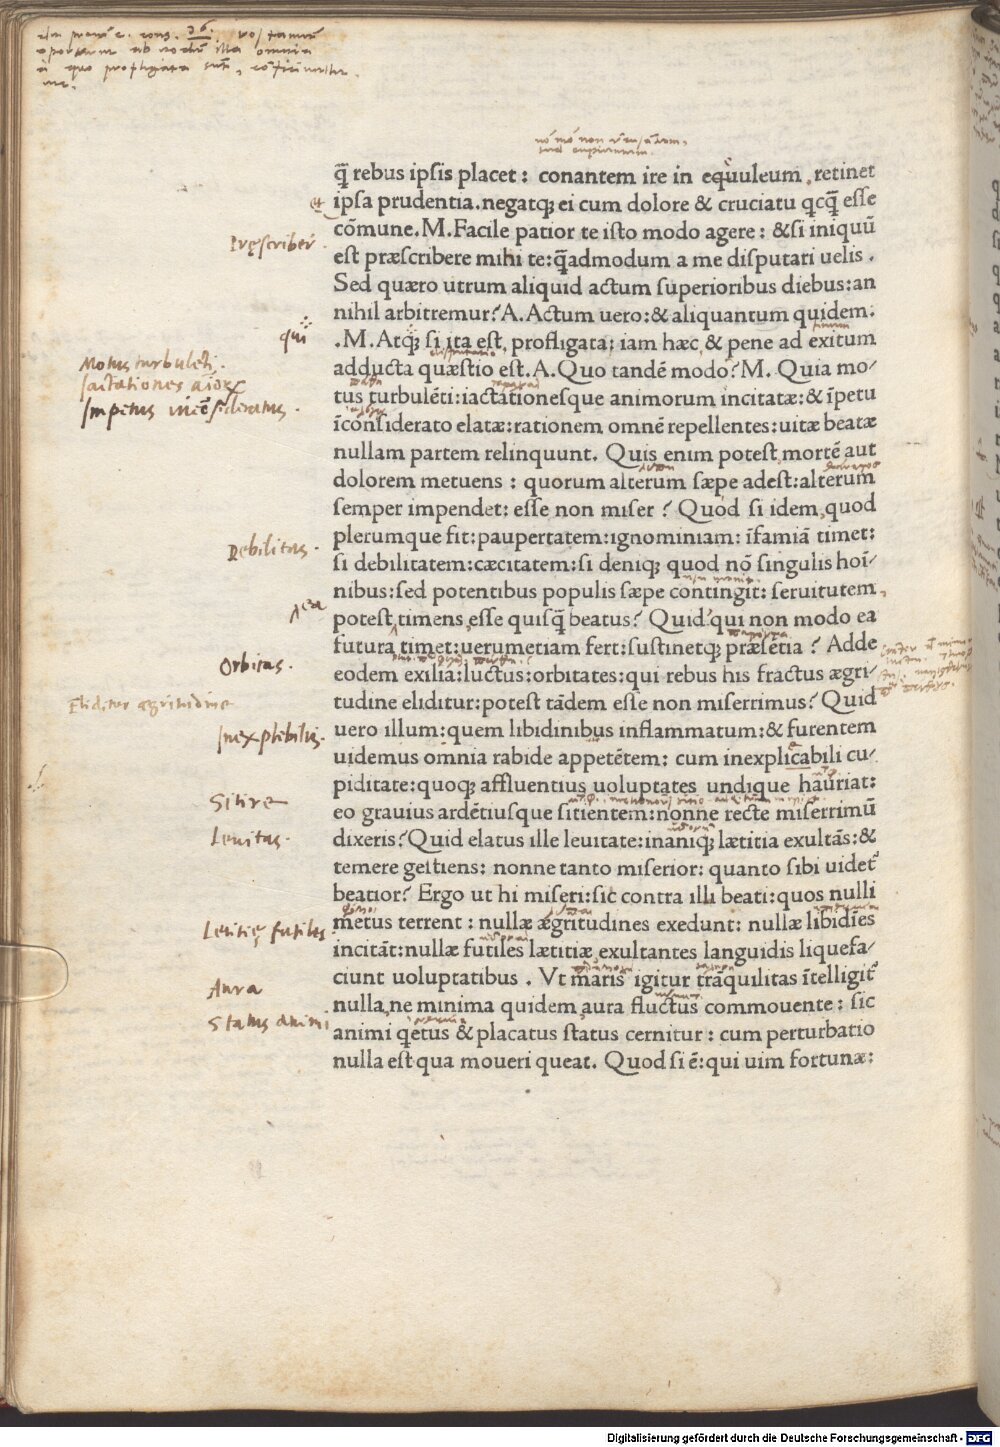 q̄ rebus ipſis placet: conantem ire in equuleum, retinet
et ipſa prudentia. negatq; ei cum dolore & cruciatu qcq̄ eſſe
Pręſcribere.
cōmune. M. Facile patior te iſto modo agere: & ſi iniquū
eſt præſcribere mihi te: q̄admodum a me diſputari uelis.
Sed quæro utrum aliquid actum ſuperioribus diebus: an
nihil arbitremur? A. Actum uero: & aliquantum quidem.
qui
.M. Atq; ſi ita eſt, profligata: iam hæc, & pene ad exitum
Motus turbulēti.
adducta quæſtio eſt. A. Quo tandē modo? M. Quia mo/
Iactationes aīorꝝ
tus turbulēti: iactationeſque animorum incitatæ: & īpetu
Impetus incōſideratus.
īconſiderato elatæ: rationem omnē repellentes: uitæ beatæ
nullam partem relinquunt. Quis enim poteſt mortē aut
dolorem metuens: quorum alterum ſæpe adeſt: alterum
ſemper impendet: eſſe non miſer? Quod ſi idem, quod
plerumque fit: paupertatem: ignominiam: īfamiā timet:
Debilitas.
ſi debilitatem: cæcitatem: ſi deniq; quod nō ſingulis hoī/
nibus: ſed potentibus populis ſæpe contingit: ſeruitutem,
ea
poteſt, timens, eſſe quiſq̄ beatus? Quid? qui non modo ea
futura timet: uerumetiam fert: ſuſtinetq; præſētia? Adde
Orbitas.
eodem exilia: luctus: orbitates: qui rebus his fractus ægri/
Eliditur ægritudine
tudine eliditur: poteſt tādem eſſe non miſerrimus? Quid
Inexplebilis.
uero illum: quem libidinibus inflammatum: & furentem
uidemus omnia rabide appetētem: cum inexplicabili cu/
piditate: quoq; affluentius uoluptates undique hauriat:
Sitire
eo grauius ardētiuſque ſitientem: nonne recte miſerrimū
Leuitas.
dixeris? Quid elatus ille leuitate: inaniq; lætitia exultās: &
temere geſtiens: nonne tanto miſerior: quanto ſibi uidet᷑
beatior? Ergo ut hi miſeri: ſic contra illi beati: quos nulli
Letitię futiles
metus terrent: nullæ ægritudines exedunt: nullæ libidīes
incitāt: nullæ futiles lætitiæ, exultantes languidis liquefa/
ciunt uoluptatibus. Vt maris igitur trāquilitas ītelligit᷑
Aura
nulla, ne minima quidem, aura fluctus commouente: ſic
Status animi
animi qetus & placatus ſtatus cernitur: cum perturbatio
nulla eſt qua moueri queat. Quod ſi ē: qui uim fortunæ:
Digitalisierung gefördert durch die Deutsche Forschungsgemeinschaft - DFG